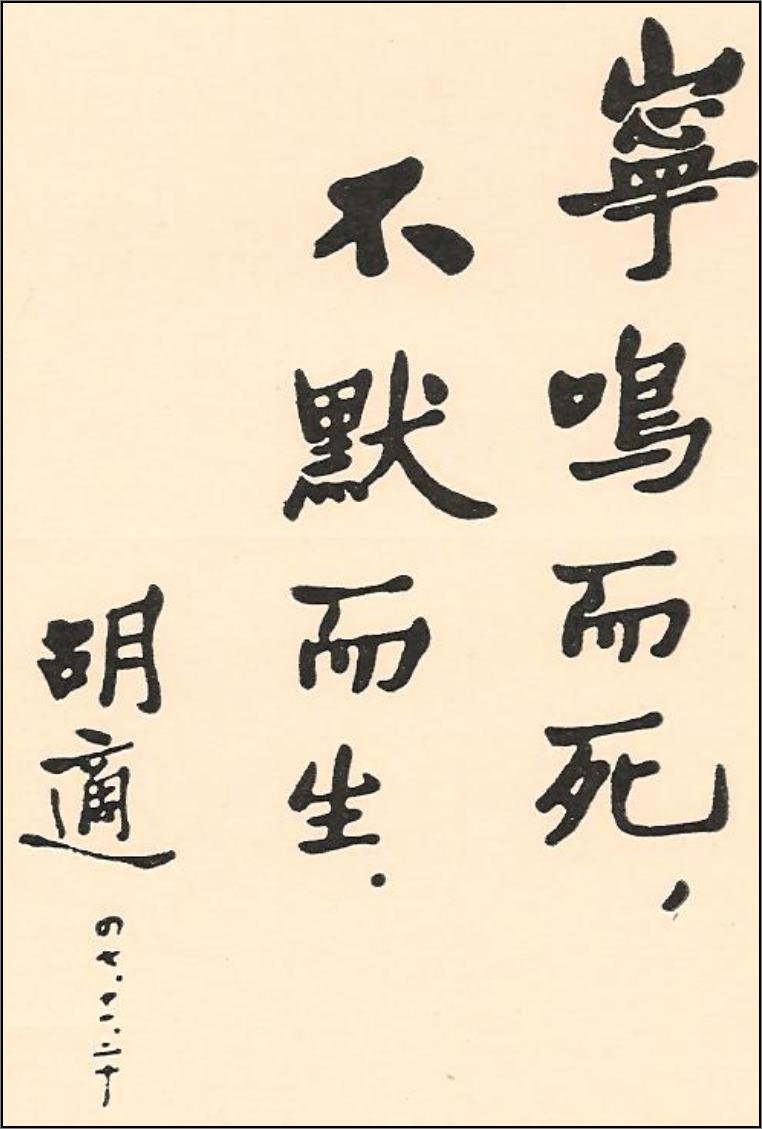 寧鳴而死，
不默而生．
胡適
四七.十一.二十